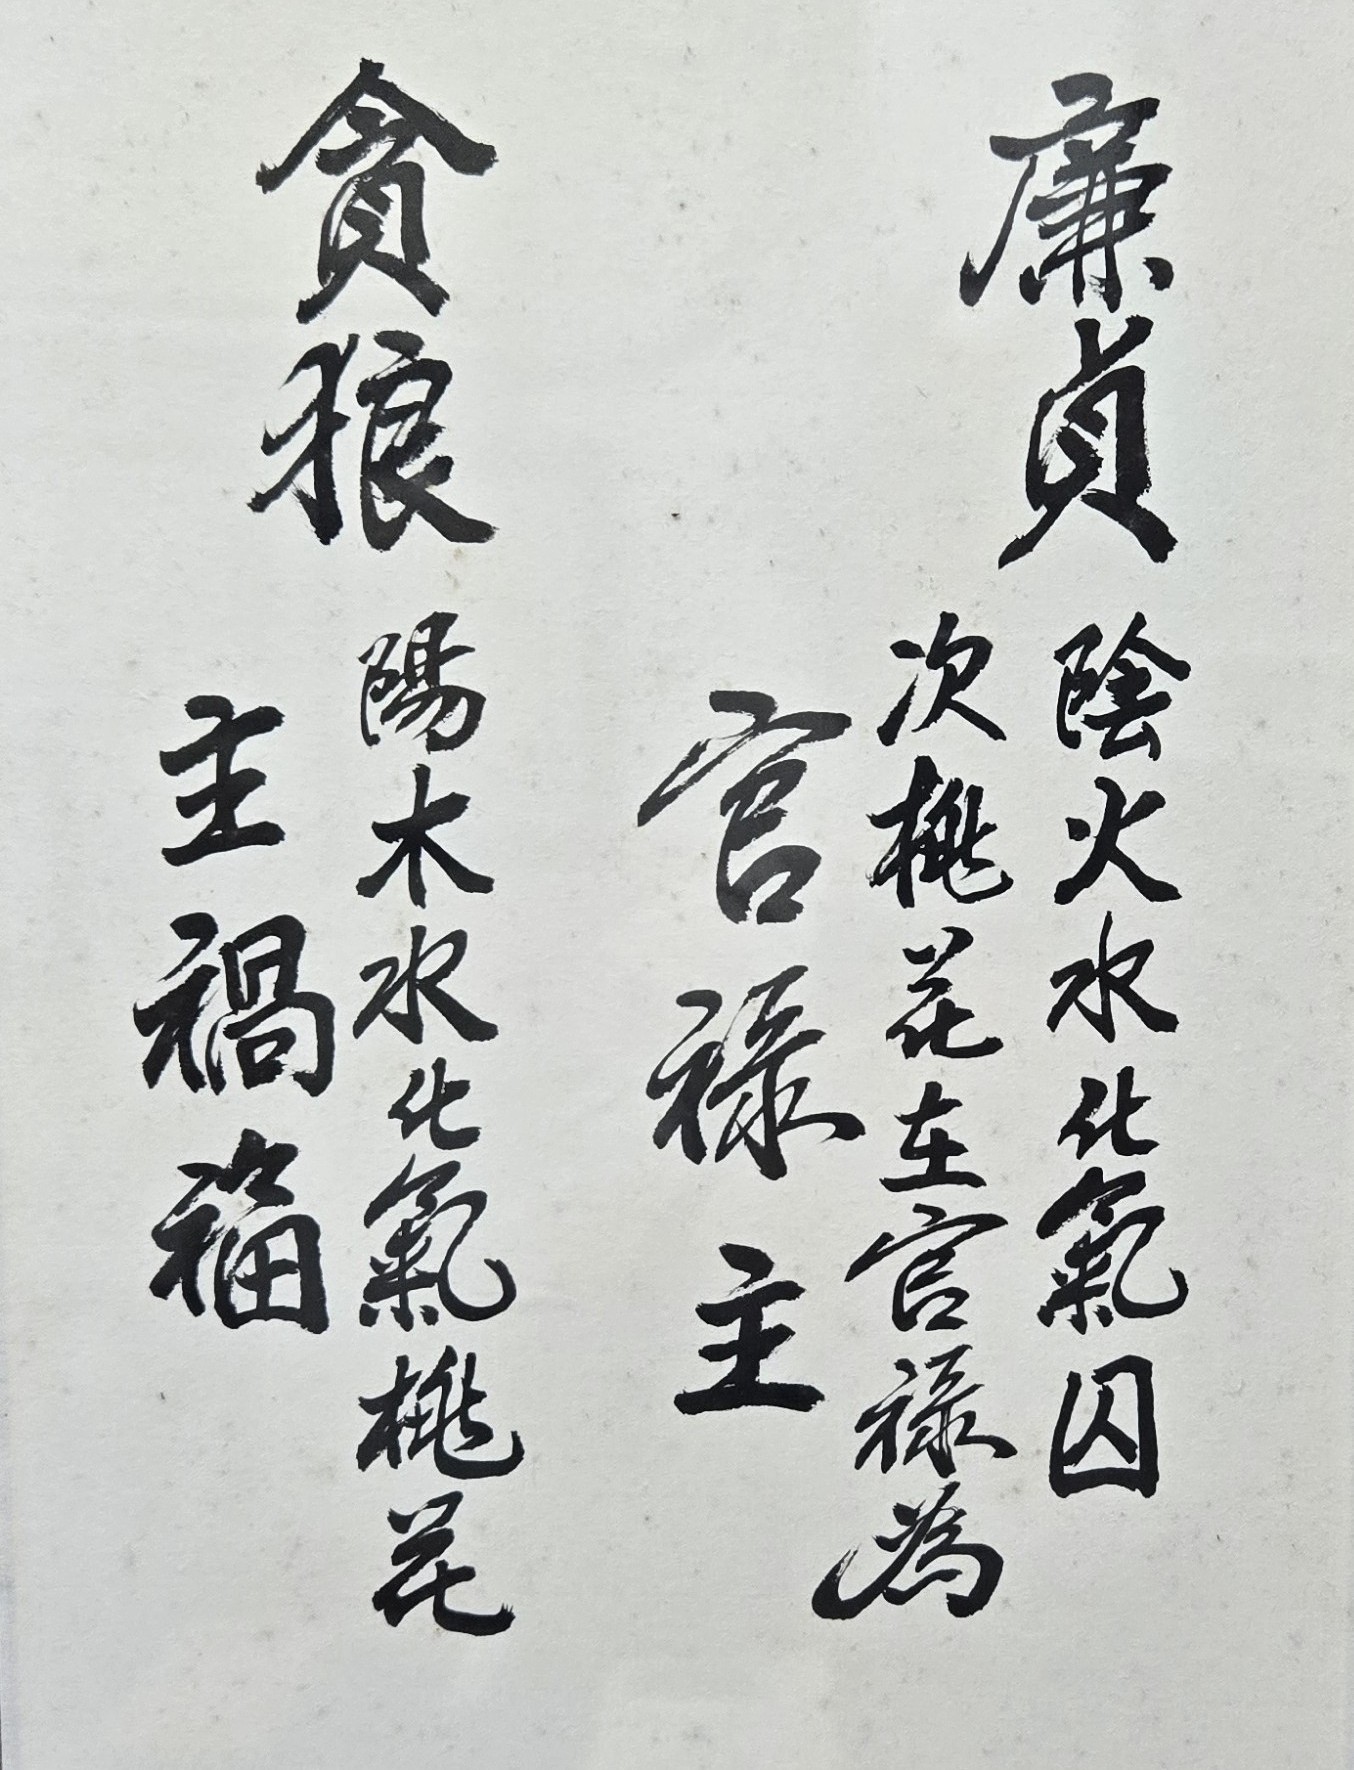 廉貞
陰火水化氣囚
次桃花在官祿為
官祿主
貪狼
陽木水化氣桃花
主禍福